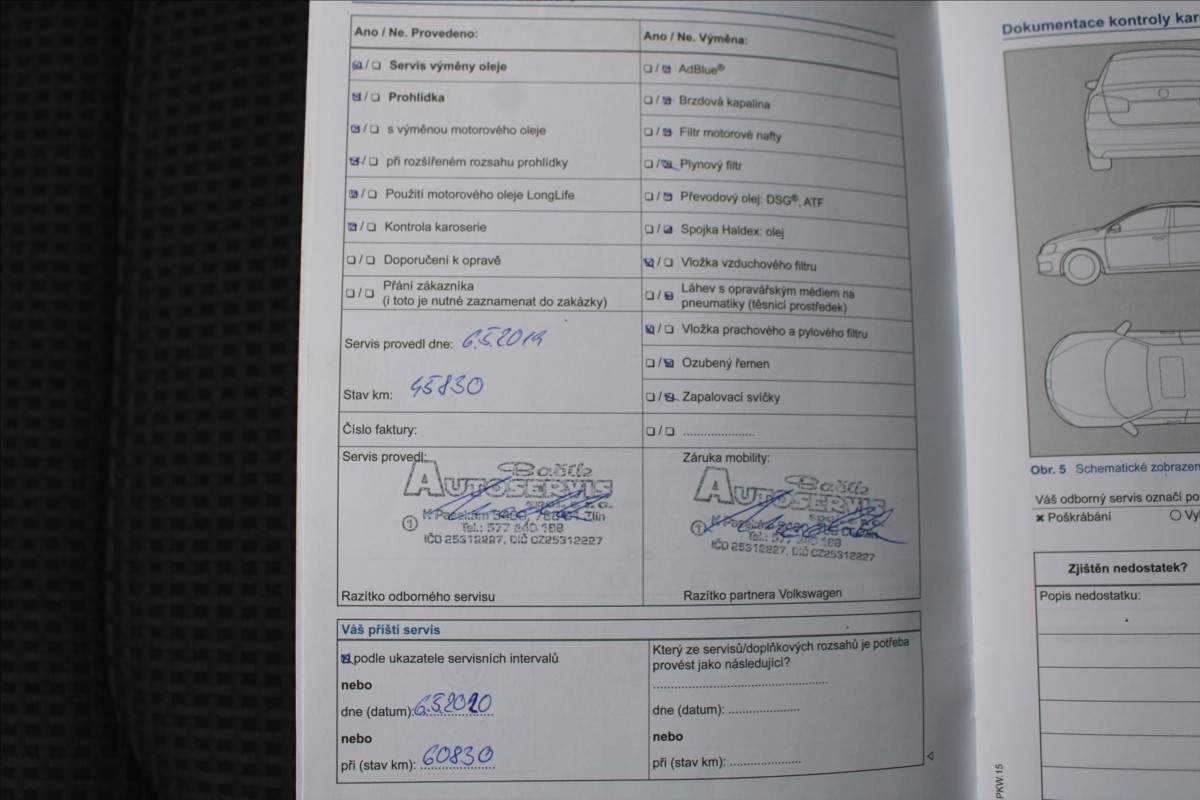 Ano / Ne. Provedeno:
☑ / ❏ Servis výměny oleje
☑ / ❏ Prohlídka
☑ / ❏ s výměnou motorového oleje
☑ / ❏ při rozšířeném rozsahu prohlídky
☑ / ❏ Použití motorového oleje LongLife
☑ / ❏ Kontrola karoserie
❏ / ❏ Doporučení k opravě
❏ / ❏ Přání zákazníka
(i toto je nutné zaznamenat do zakázky)
Servis provedl dne: 6.5.2019
Stav km: 45830
Číslo faktury:
Servis provedl:
Bačík
AUTOSERVIS
s.r.o.
K Pasekám 3400, 760 01 Zlín
Tel.: 577 240 188
IČO 25312227, DIČ CZ25312227
1
Razítko odborného servisu
Ano / Ne. Výměna:
❏ / ☑ AdBlue®
❏ / ☑ Brzdová kapalina
❏ / ☑ Filtr motorové nafty
❏ / ☑ Plynový filtr
❏ / ☑ Převodový olej: DSG®, ATF
❏ / ☑ Spojka Haldex: olej
☑ / ❏ Vložka vzduchového filtru
❏ / ☑ Láhev s opravářským médiem na
pneumatiky (těsnicí prostředek)
☑ / ❏ Vložka prachového a pylového filtru
❏ / ☑ Ozubený řemen
❏ / ☑ Zapalovací svíčky
❏ / ❏ .....................
Záruka mobility:
Bačík
AUTOSERVIS
1
IČO 25312227, DIČ CZ25312227
Razítko partnera Volkswagen
Váš příští servis
☑ podle ukazatele servisních intervalů
nebo
dne (datum): 6.5.2020
nebo
při (stav km): 60830
Který ze servisů/doplňkových rozsahů je potřeba
provést jako následující?
dne (datum): ....................
nebo
při (stav km): ....................
Dokumentace kontroly kar
Obr. 5 Schematické zobrazen
Váš odborný servis označí po
✖ Poškrábání
Zjištěn nedostatek?
Popis nedostatku:
PKW.15